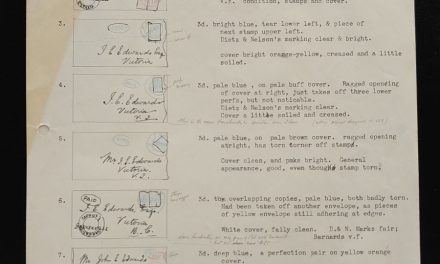 V.F. condition, stamps and cover.
3.
3d. bright blue, tear lower left, & piece of
next stamp upper left.
Dietz & Nelson's marking clear & bright.
cover bright orange-yellow, creased and a little
soiled.
J. E. Edwards Esq
Victoria
4.
3d pale blue, on pale buff cover. Ragged opening
of cover at right, just takes off three lower
perfs, but not noticeable.
Dietz & Nelson's marking clear.
Cover a little soiled and creased.
J. E. Edwards
Victoria
V.I.
5.
3d pale blue, on pale brown cover. ragged opening
atright, has torn corner off stamp.
Cover clean, and pmks bright. General
appearance, good, even though stamp torn.
Mr J. E. Edwards
Victoria
V.I.
6.
3d, two overlapping copies, pale blue, both badly torn.
Had been taken off another envelope, as pieces
of yellow envelope still adhering at edges.
White cover, fally clean. D.& N. Marks fair;
Barnards v.f.
PAID
J. E. Edwards, Esq
Victoria
B.C.
7.
3d. deep blue, a perfection pair on yellow orange
cover.
Mr John E Edwards